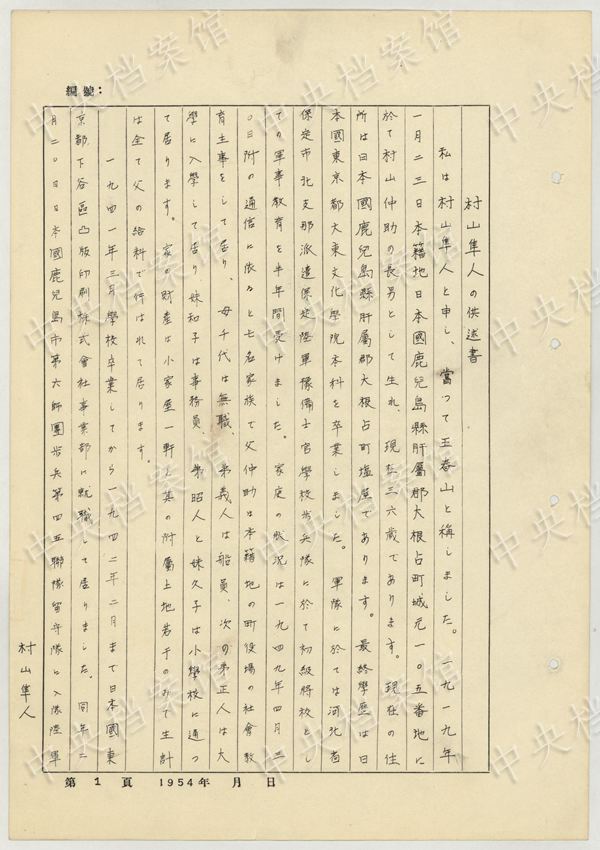 編號：
村山隼人の供述書
私は村山隼人と申し、當つて王春山と稱しました。一九一九年
一月二三日本籍地日本國鹿兒島縣肝屬郡大根占町城元一〇五番地に
於て村山仲助の長男として生れ、現在三六歳であります。現在の住
所は日本國鹿兒島縣肝屬郡大根占町塩屋であります。最終學歷は日
本國東京都大東文化學院本科を卒業しました。軍隊に於ては河北省
保定市北支那派遣保定陸軍豫備士官學校步兵隊に於て初級將校とし
ての軍事教育を半年間受けました。家庭の狀況は一九四九年四月三
〇日附の通信に依ると七名家族で父仲助は本籍地の町役場の社會教
育主事をして居り、母千代は無職、弟義人は船員、次の弟正人は大
學に入學して居り妹和子は事務員、弟昭人と妹久子は小學校に通つ
て居ります。家の財産は小家屋一軒と其の附屬土地若干のみで生計
は全て父の給料で行はれて居ります。
一九四一年三月學校卒業してから一九四二年二月まで日本國東
京都下谷區凸版印刷株式會社事業部に就職して居りました。同年二
月二〇日日本國鹿兒島市第六師團步兵第四五聯隊留守隊に入隊陸軍
村山隼人
第1頁 1954年 月 日
中央档案馆